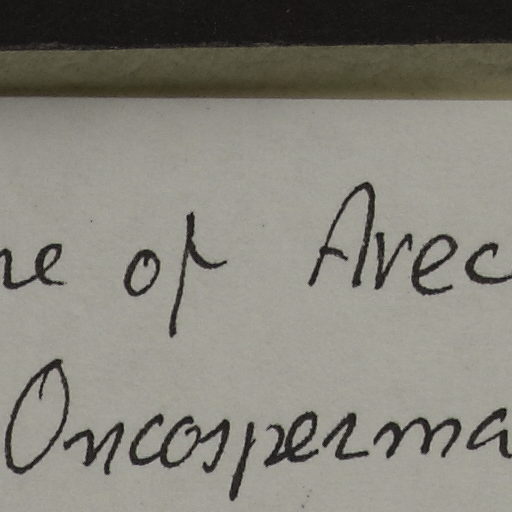 of Arec
Oncosperma